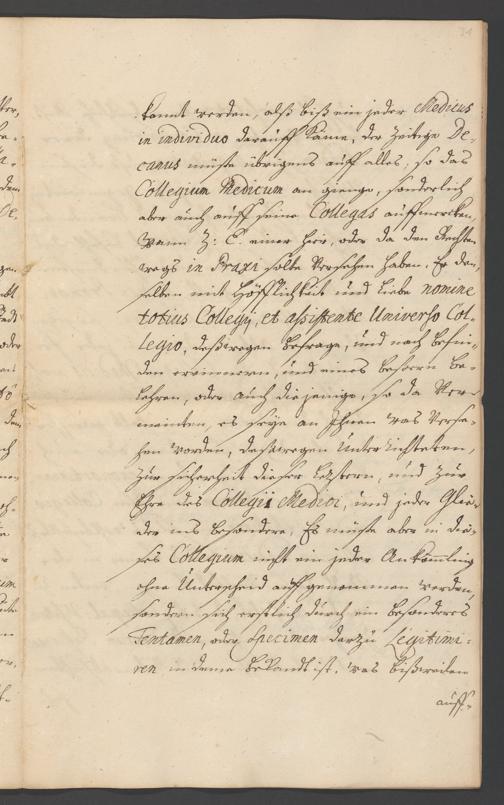 kannt werden, alß biß ein jeder Medicus
in individuo darauff käme, der Zeitige De-
canus müste übrigens auff alles, so das
Collegium Medicum an gienge, sonderlich
aber auch auff seine Collegas auffmercken,
Wann Z: E. einer hier, oder da den Rechten
wegs in Praxi solte Versehen haben, Er den-
selben mit Höfflichkeit und Liebe nomine
totius Collegij, et assistente Universo Col-
legio, deßwegen befrage, und nach befin-
den erinnern, und eines bessern be-
lehren, oder auch diejenige, so da Ver-
meinten, es seye an Ihnen was Verse-
hen worden, deßwegen Unterrichteten,
zur sicherheit dieser letztern, und zur
Ehre des Collegii Medici, und jeder Glie-
der ins besondere, Es müste aber in die-
ses Collegium nicht ein jeder Ankömling
ohne Unterscheid auffgenommen werden,
sondern sich erstlich durch ein besonderes
Tentamen, oder Specimen darzu Legitimi-
ren in deme bekandt ist, was bißweilen
auff-